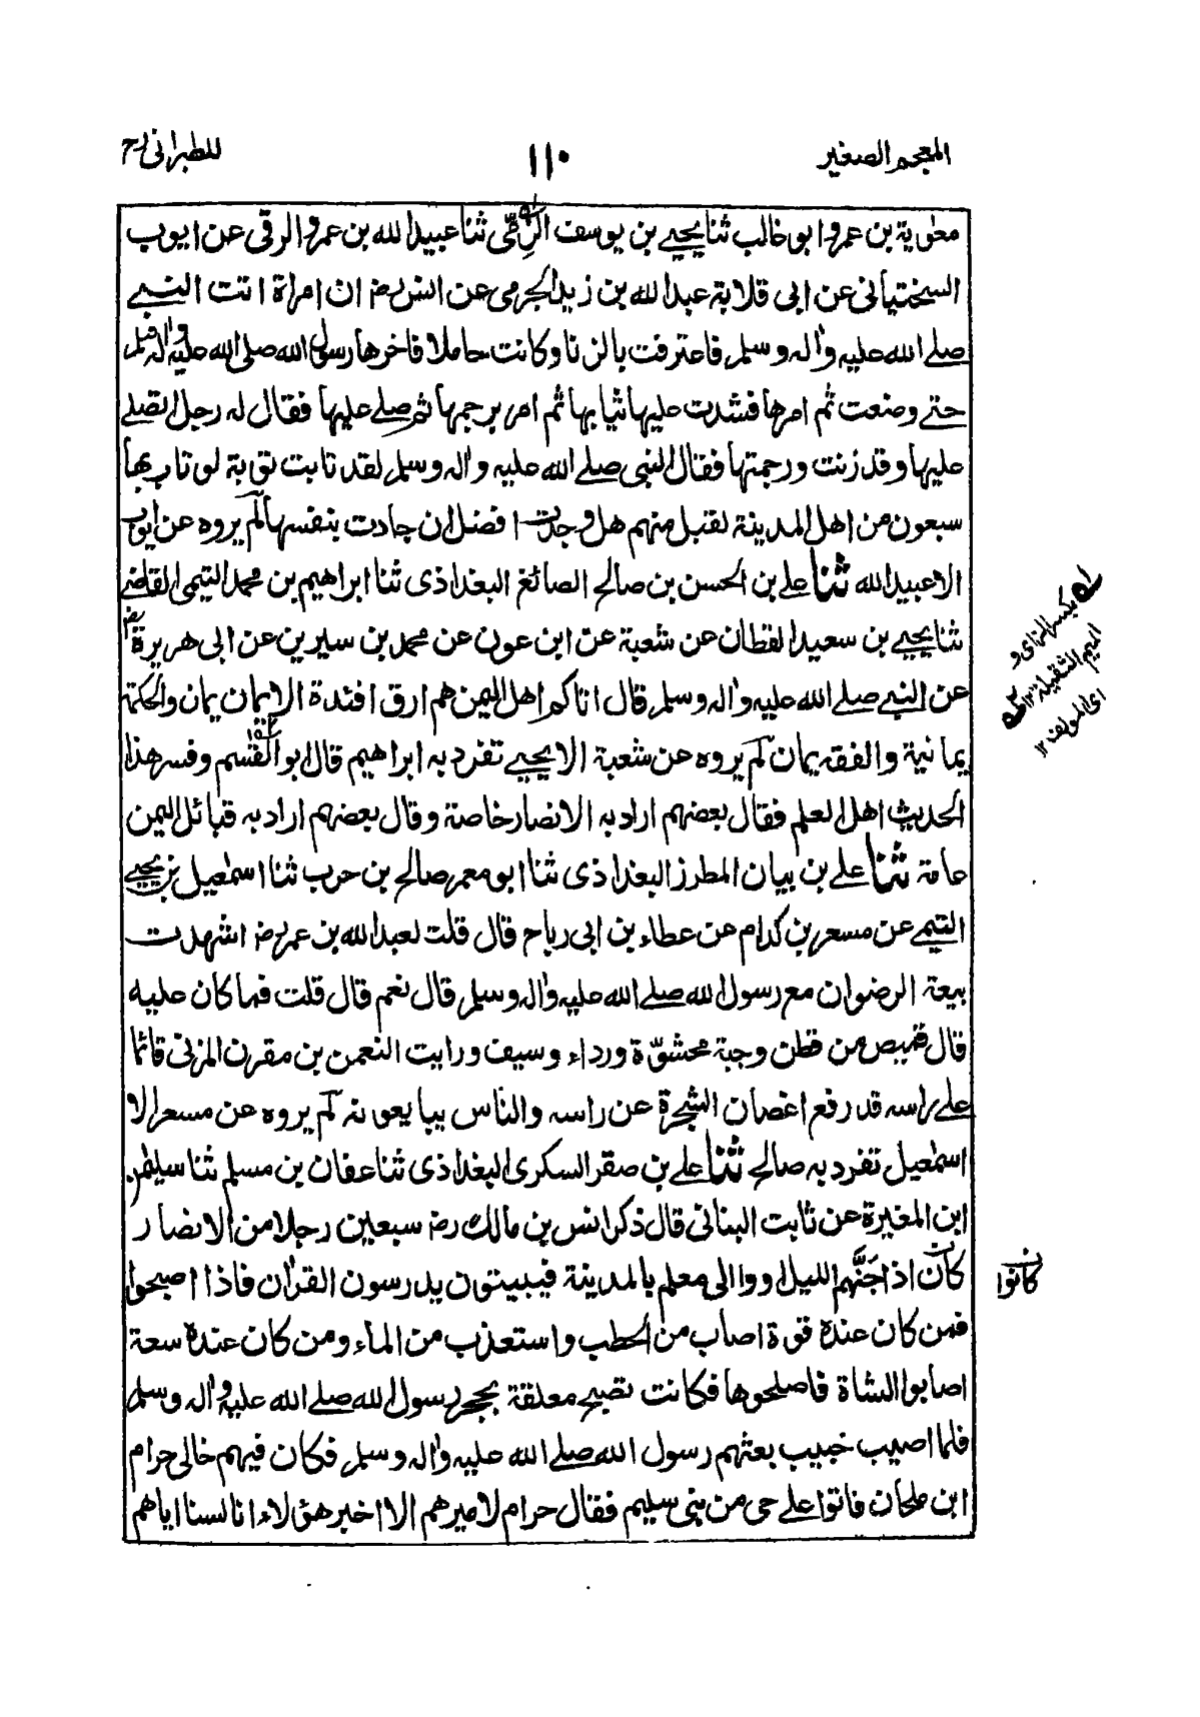 المعجم الصغير
١١٠
للطبرانی رح
معٰویة بن عمرو ابو غالب ثنا یحیی بن یوسف الزِّمِّی ثنا عبید الله بن عمرو الرقی عن ایوب
السختیانی عن ابی قلابة عبد الله بن زید الجرمی عن انس رضہ ان امراة اتت النبی
صلے الله علیه واٰله وسلم فاعترفت بالزنا وکانت حاملا فاخرها رسول الله صلی الله علیه واٰله وسلم
حتے وضعت ثم امرها فشدت علیها ثیابها ثم امر برجمها ثم صلے علیها فقال له رجل اتصلے
علیها وقد زنت ورجمتها فقال النبی صلے الله علیه واٰله وسلم لقد تابت توبة لو تاب بها
سبعون من اهل المدینة لقبل منهم هل وجدت افضل ان جادت بنفسها لم یروه عن ایوب
الا عبید الله ثنا علے بن الحسن بن صالح الصائغ البغداذی ثنا ابراهیم بن محمد التیمی القاضے
ثنا یحیے بن سعید القطان عن شعبة عن ابن عون عن محمد بن سیرین عن ابی هریرة رضہ
عن النبے صلے الله علیه واٰله وسلم قال اتاکم اهل الیمن هم ارق افئدة الایمان یمان والحکمة
یمانیة والفقه یمان لم یروه عن شعبة الا یحیے تفرد به ابراهیم قال ابو القٰسم وفسر هذا
الحدیث اهل العلم فقال بعضهم اراد به الانصار خاصة وقال بعضهم اراد به قبائل الیمن
عامة ثنا علے بن بیان المطرز البغداذی ثنا ابو معمر صالح بن حرب ثنا اسمٰعیل بن یحیے
التیمے عن مسعر بن کدام عن عطاء بن ابی رباح قال قلت لعبد الله بن عمر رضہ اشهدت
بیعة الرضوان مع رسول الله صلے الله علیه واٰله وسلم قال نعم قال قلت فما کان علیه
قال قمیص من قطن وجبة محشوّة ورداء وسیف ورایت النعمن بن مقرن المزنی قائما
علے راسه قد رفع اغصان الشجرة عن راسه والناس یبایعونه لم یروه عن مسعر الا
اسمٰعیل تفرد به صالح ثنا علے بن صقر السکری البغداذی ثنا عفان بن مسلم ثنا سلیمٰن
ابن المغیرة عن ثابت البنانی قال ذکر انس بن مالک رضہ سبعین رجلا من الانصار
کان اذا جَنَّهم اللیل اووا الی معلم بالمدینة فیبیتون یدرسون القراٰن فاذا اصبحوا
فمن کان عنده قوة اصاب من الحطب واستعذب من الماء ومن کان عنده سعة
اصابوا الشاة فاصلحوها فکانت تصبح معلقة بحجر رسول الله صلے الله علیه واٰله وسلم
فلما اصیب خبیب بعثهم رسول الله صلے الله علیه واٰله وسلم فکان فیهم خالی حرام
ابن ملحان فاتوا علے حی من بنی سلیم فقال حرام لامیرهم الا اخبر هؤلاء انا لسنا ایاهم
بکسر الزای و
المیم الثقیلة ١٢
ای المؤلف ١٢
کانوا